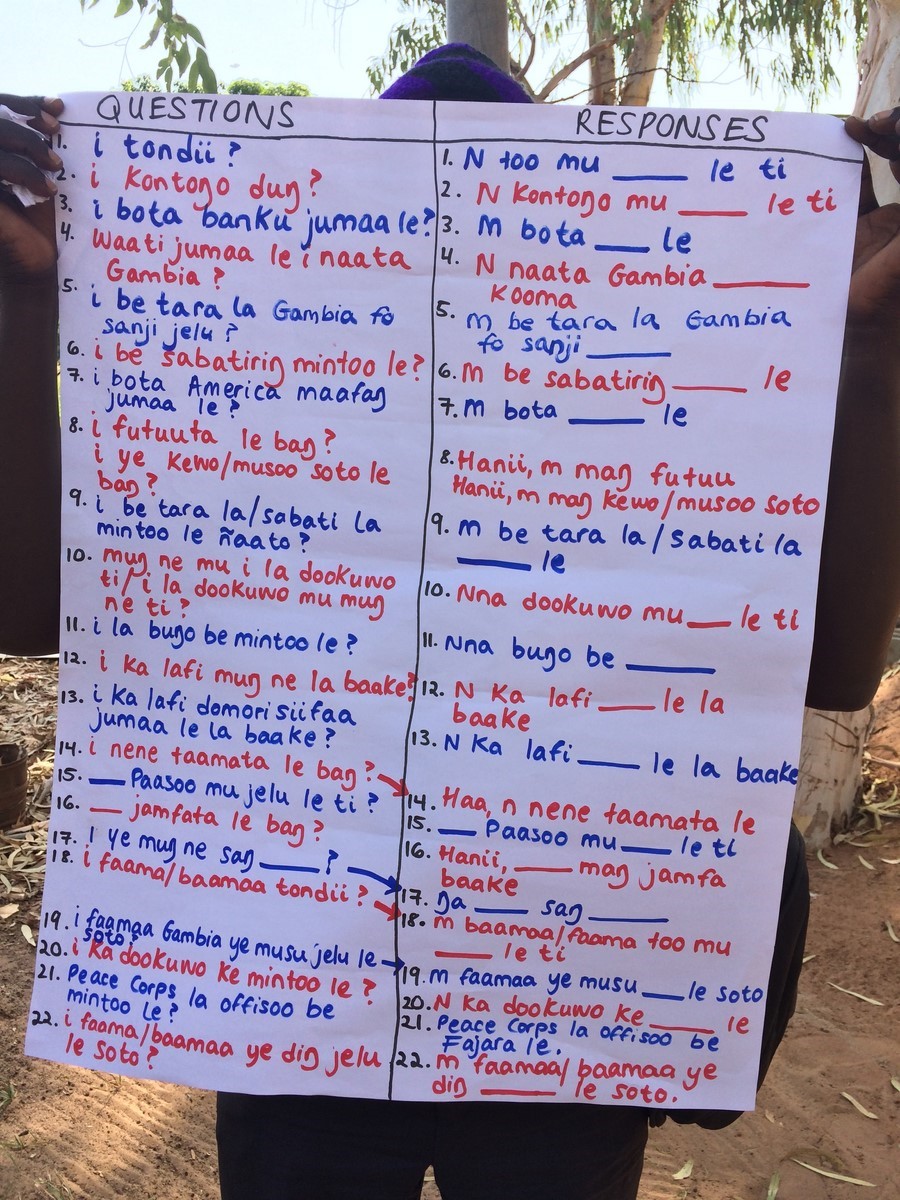 QUESTIONS
1. i tondii?
2. i Kontoŋo duŋ?
3. i bota banku jumaa le?
4. Waati jumaa le i naata
Gambia?
5. i be tara la Gambia fo
sanji jelu?
6. i be sabatiriŋ mintoo le?
7. i bota America maafaŋ
jumaa le?
8. i futuuta le baŋ?
i ye kewo/musoo soto le
baŋ?
9. i be tara la/sabati la
mintoo le ñaato?
10. muŋ ne mu i la dookuwo
ti/i la dookuwo mu muŋ
ne ti?
11. i la buŋo be mintoo le?
12. i ka lafi muŋ ne la baake?
13. i ka lafi domori siifaa
jumaa le la baake?
14. i nene taamata le baŋ?
15. ___ Paasoo mu jelu le ti?
16. ___ jamfata le baŋ?
17. I ye muŋ ne saŋ ___?
18. i faama/baamaa tondii?
19. i faamaa Gambia ye musu jelu le
soto?
20. i ka dookuwo ke mintoo le?
21. Peace Corps la offisoo be
mintoo le?
22. i faama/baamaa ye diŋ jelu
le soto?
RESPONSES
1. N too mu ___ le ti
2. N Kontoŋo mu ___ le ti
3. M bota ___ le
4. N naata Gambia ___
Kooma
5. m be tara la Gambia
fo sanji ___
6. M be sabatiriŋ ___ le
7. M bota ___ le
8. Hanii, m maŋ futuu
Hanii, m maŋ kewo/musoo soto
9. M be tara la/sabati la
___ le
10. Nna dookuwo mu ___ le ti
11. Nna buŋo be ___
12. N ka lafi ___ le la
baake
13. N ka lafi ___ le la baake
14. Haa, n nene taamata le
15. ___ Paasoo mu ___ le ti
16. Hanii, ___ maŋ jamfa
baake
17. Ŋa ___ saŋ ___
18. m baamaa/faama too mu
___ le ti
19. m faamaa ye musu ___ le soto
20. N ka dookuwo ke ___ le
21. Peace Corps la offisoo be
Fajara le.
22. m faamaa/baamaa ye
diŋ ___ le soto.